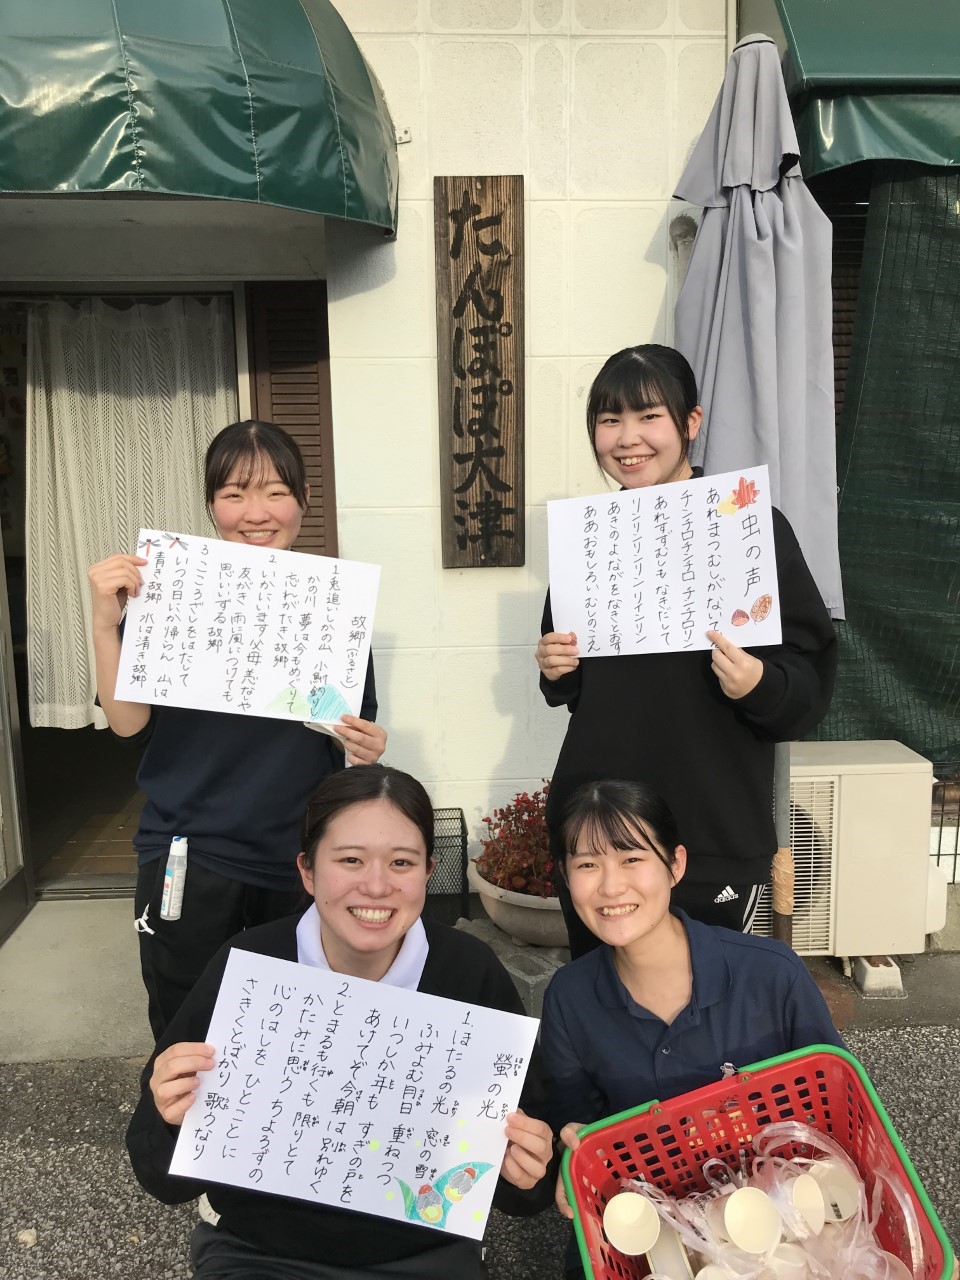 たんぽぽ大津
故郷(ふるさと)
1 兎追いしかの山 小鮒釣りし
かの川 夢は今もめぐりて
忘れがたき故郷
2 いかにいます父母 恙なしや
友がき 雨に風につけても
思いいずる 故郷
3 こころざしをはたして
いつの日にか帰らん 山は
青き故郷 水は清き故郷
虫の声
あれまつむしがないて
チンチロチンチロ チンチロリン
あれすずむしも なきだして
リンリンリンリン リイーンリン
あきのよながを なきとおす
ああおもしろい むしのこえ
adidas
螢の光
1. ほたるの光 窓の雪
ふみよむ月日 重ねつつ
いつしか年も すぎの戸を
あけてぞ 今朝は 別れゆく
2. とまるも行くも 限りとて
かたみに思う ちよろずの
心のはしを ひとことに
さきくとばかり 歌うなり